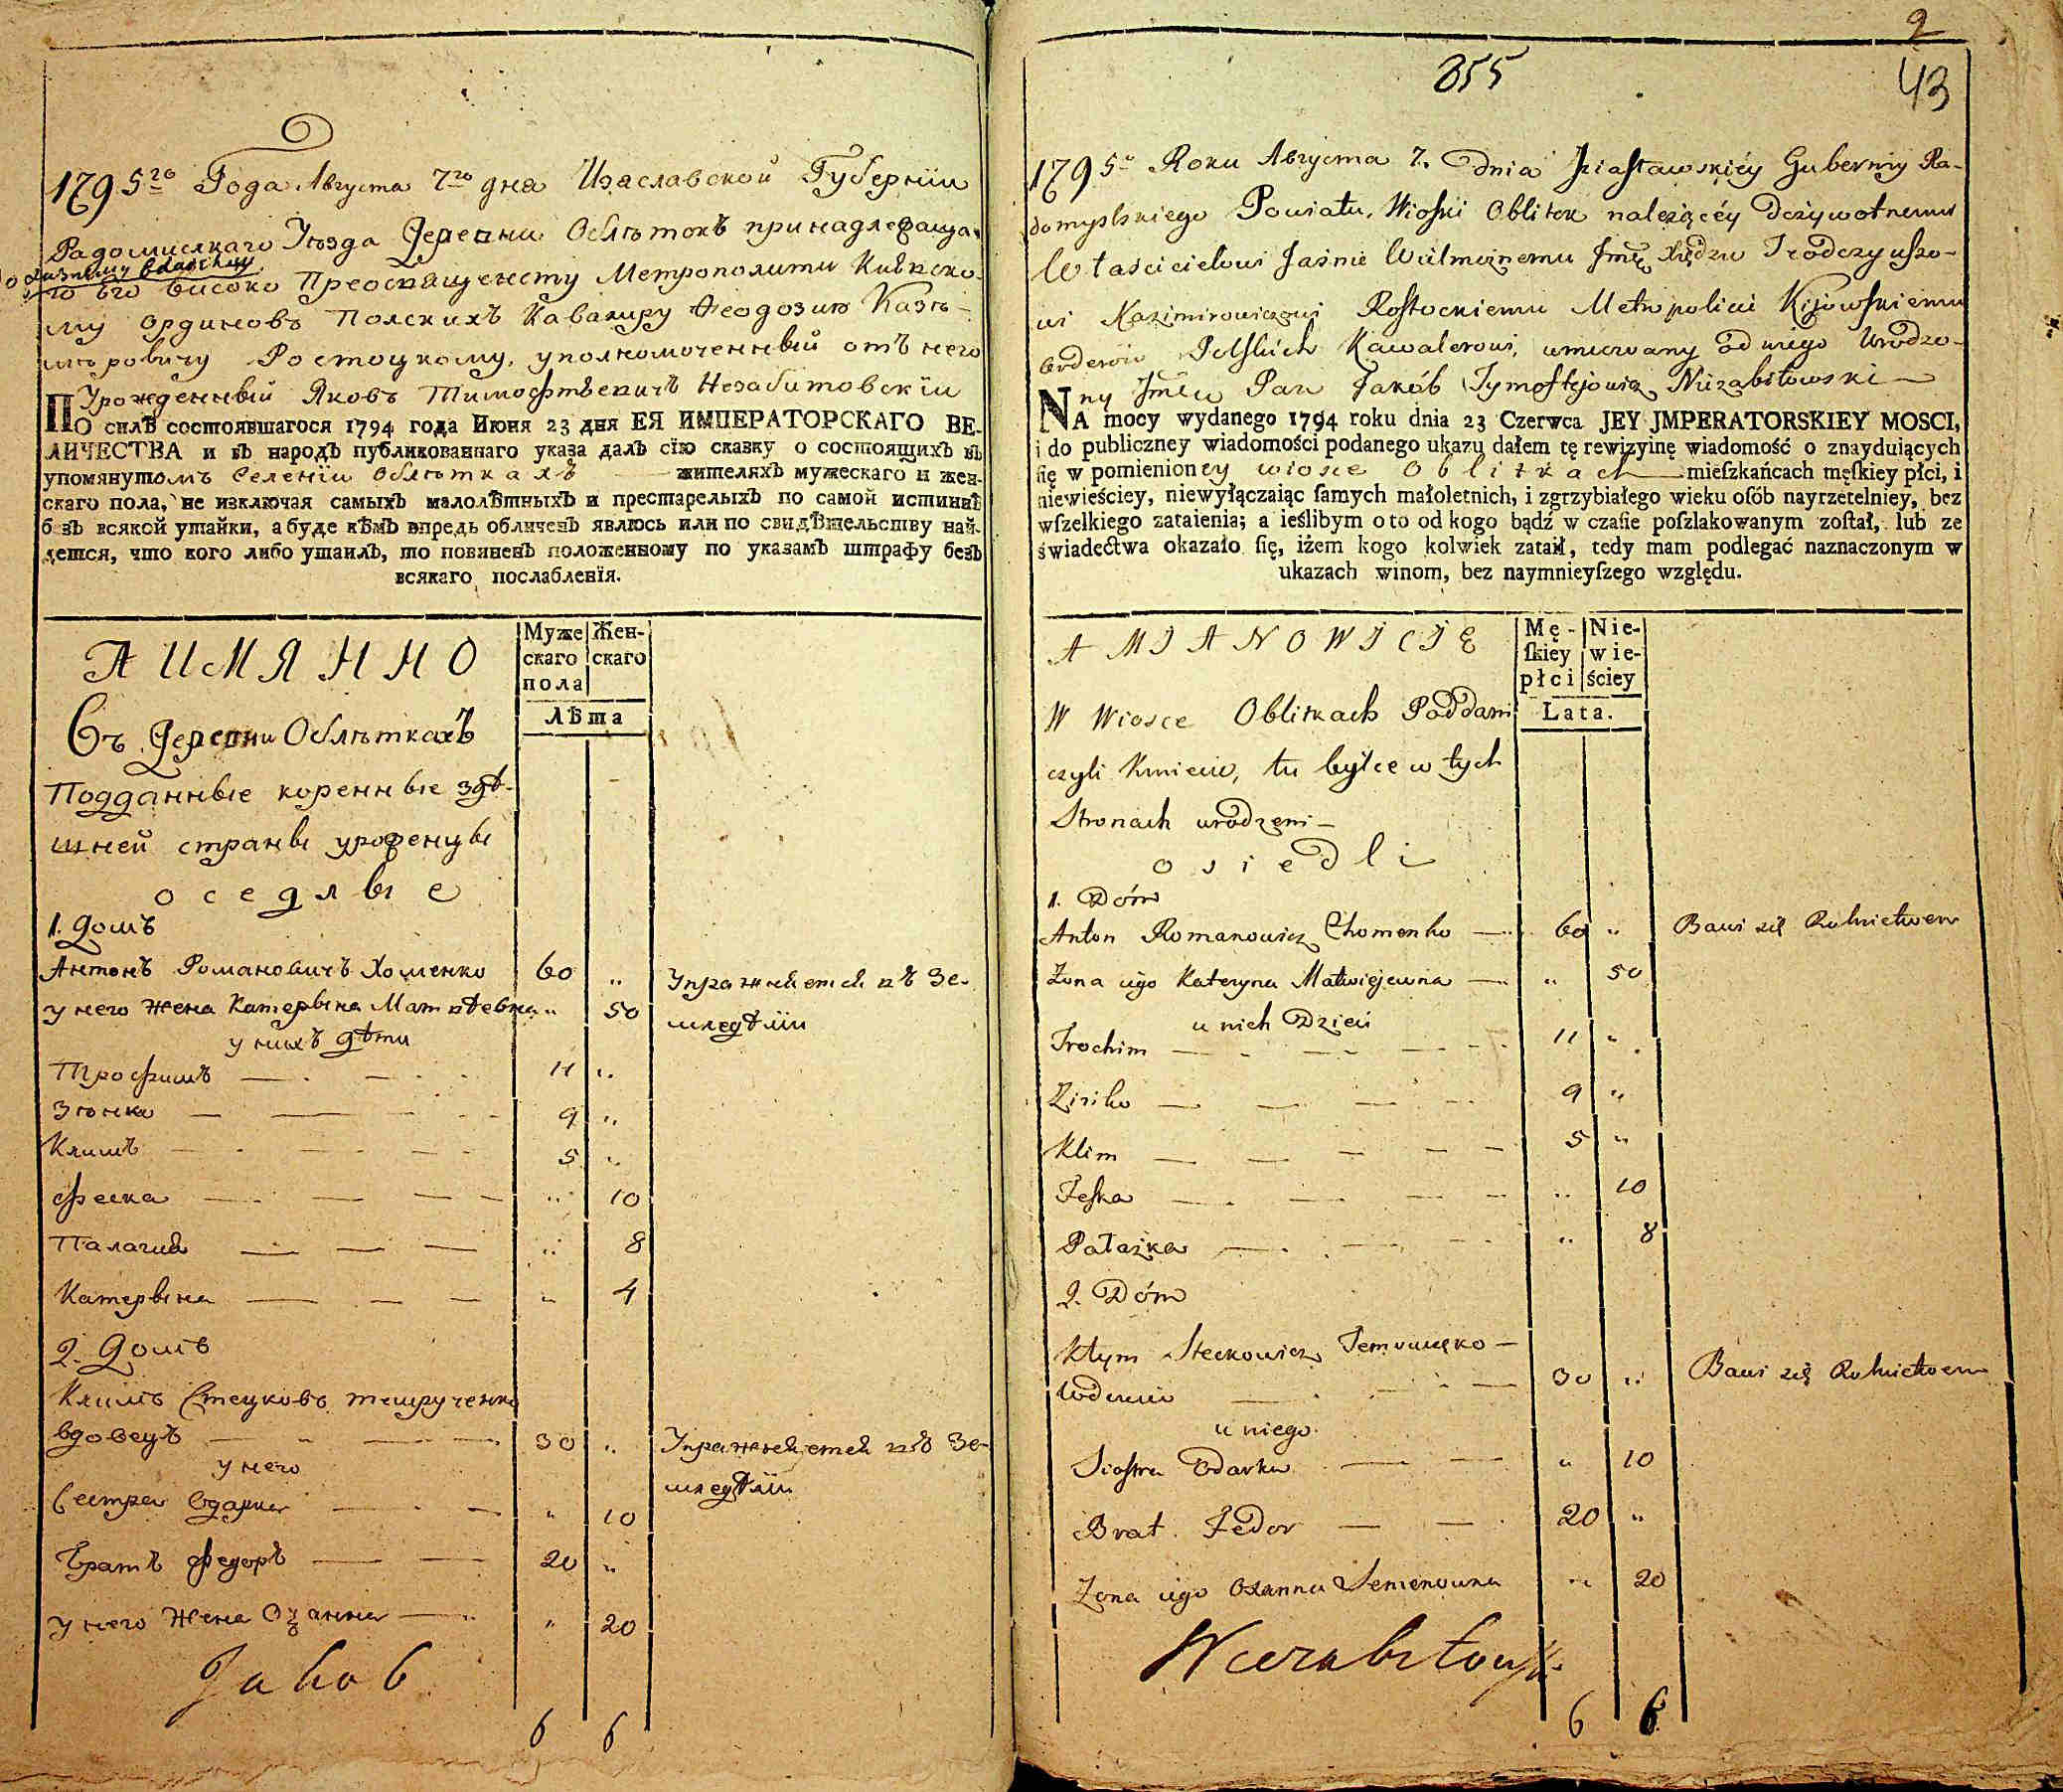 1795го Года Августа 7го дня Изаславской Губернїи
Радомислкаго Уѣзда Деревни Облѣтокъ принадлежаща
го Его Високо Преосвященсту Метрополити Киевско
му ординовъ Полскихъ Кавалиру Феодозию Казѣ-
мѣровичу Ростоцкому, уполномоченный отъ него
Урожденный Яковъ Тимофѣевичъ Незабитовскїи
ПО силѣ состоявшагося 1794 года Июня 23 дня ЕЯ ИМПЕРАТОРСКАГО ВЕ-
ЛИЧЕСТВА и въ народъ публикованнаго указа далъ сїю сказку о состоящихъ въ
упомянутомъ Селенїи Облѣткахъ жителяхъ мужескаго и жен-
скаго пола, не изключая самыхъ малолѣтныхъ и престарелыхъ по самой истиннѣ
безъ всякой утайки, а буде кѣмъ впредь обличенъ явлюсь или по свидѣтельству най-
дется, что кого либо утаилъ, то повиненъ положенному по указамъ штрафу безъ
всякаго послабленїя.
А ИМЯННО
Муже скаго пола
Жен- скаго
Лѣта
Съ Деревни Облѣткахъ
Подданные коренные здѣ-
шней страны уроженцы
оседлые
1. Домъ
Антонъ Романовичъ Хоменко 60 „ Упражняется въ Зе-
у него Жена Катерына Матвѣевна „ 50 мледѣлїи
у нихъ дѣти
Трофимъ 11 „
Зѣнко 9 „
Климъ 5 „
Феска „ 10
Палагия „ 8
Катерына „ 4
2. Домъ
Климъ Стецковъ темрученко
вдовецъ 30 „ Упражняется въ Зе-
у него мледѣлїи
Сестра Одарка „ 10
Братъ Федоръ 20 „
у него Жена Озанна „ 20
Jakob
6 6
2
855
43
1795o Roku Августа 7. Dnia Iziasławskiéy Guberniy Ra-
domyslskiego Powiatu, Wioski Oblitek należącéy Dożywotnemu
Właścicielowi Jaśnie Wielmożnemu Jmć Xiędzu Teodozyuszo-
wi Kazimirowiczowi Rostockiemu Metropolicie Kijowskiemu
orderów Polskich Kawalerowi, umocowany od niego Urodzo-
ny Jmć Pan Jakób Tymofiejowicz Niezabitowski
NA mocy wydanego 1794 roku dnia 23 Czerwca JEY JMPERATORSKIEY MOSCI,
i do publiczney wiadomości podanego ukazu dałem tę rewizyinę wiadomość o znayduiących
ſię w pomienioney wiosce Oblitkach mieſzkańcach męſkiey płci, i
niewieściey, niewyłączaiąc ſamych małoletnich, i zgrzybiałego wieku oſób nayrzetelniey, bez
wſzelkiego zataienia; a ieślibym o to od kogo bądź w czaſie poſzlakowanym zoſtał, lub ze
świadectwa okazało ſię, iżem kogo kolwiek zataił, tedy mam podlegać naznaczonym w
ukazach winom, bez naymnieyſzego względu.
A MIANOWICIE
Mę- ſkiey płci
Nie- wie- ściey
Lata.
W Wiosce Oblitkach Poddani
czyli Kmiecie, tu bylce w tych
Stronach urodzeni
osiedli
1. Dóm
Anton Romanowicz Chomenko 60 „ Bawi się Rolnictwem
Zona iego Kateryna Matwiejewna „ 50
u nich Dzieci
Trochim 11 „
Zinko 9 „
Klim 5 „
Feska „ 10
Pałażka „ 8
2. Dóm
Kłym Steckowicz Temruczko
Wdowiec 30 „ Bawi się Rolnictwem
u niego
Siostra Odarka „ 10
Brat Fedor 20 „
Zona iego Oxanna Semenowna „ 20
Niezabitowski
6 6